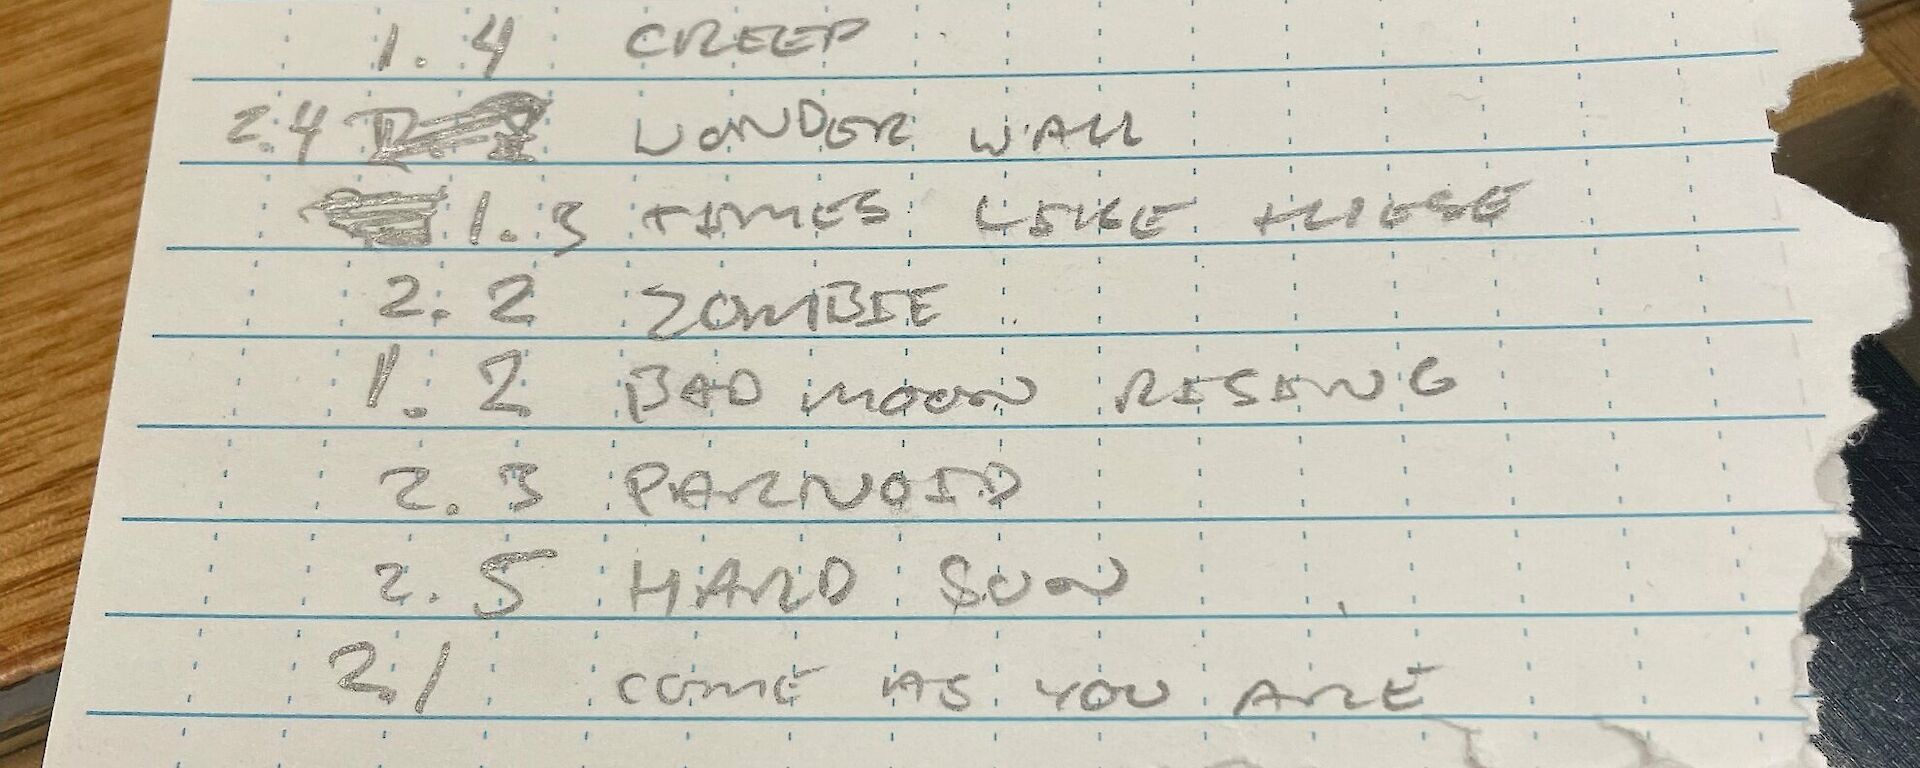 1.4 CREEP
2.4 WONDER WALL
1.3 TIMES LIKE THESE
2.2 ZOMBIE
1.2 BAD MOON RISING
2.3 PARNOID
2.5 HARD SUN
2.1 COME AS YOU ARE